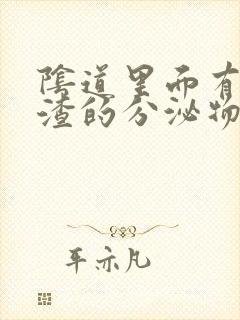 陰道里面有
渣的分泌物
平亦凡